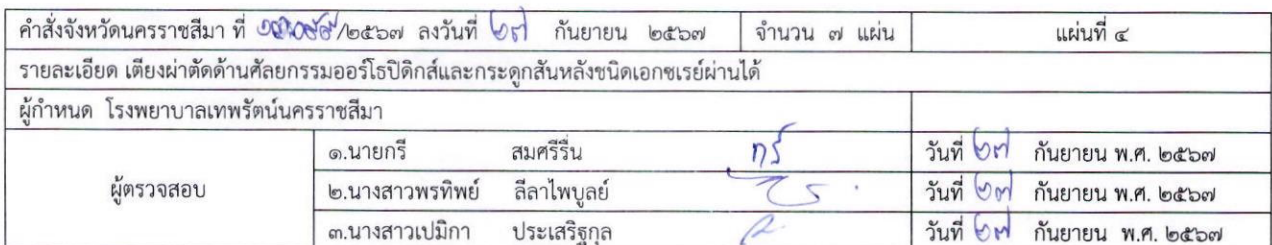 คำสั่งจังหวัดนครราชสีมา ที่ /๒๕๖๗ ลงวันที่ ๒๗ กันยายน ๒๕๖๗ จำนวน ๗ แผ่น แผ่นที่ ๔
รายละเอียด เตียงผ่าตัดด้านศัลยกรรมออร์โธปิดิกส์และกระดูกสันหลังชนิดเอกซเรย์ผ่านได้
ผู้กำหนด โรงพยาบาลเทพรัตน์นครราชสีมา
ผู้ตรวจสอบ
๑.นายกรี สมศรีรื่น กรี วันที่ ๒๗ กันยายน พ.ศ. ๒๕๖๗
๒.นางสาวพรทิพย์ ลีลาไพบูลย์ วันที่ ๒๗ กันยายน พ.ศ. ๒๕๖๗
๓.นางสาวเปมิกา ประเสริฐกุล วันที่ ๒๗ กันยายน พ.ศ. ๒๕๖๗